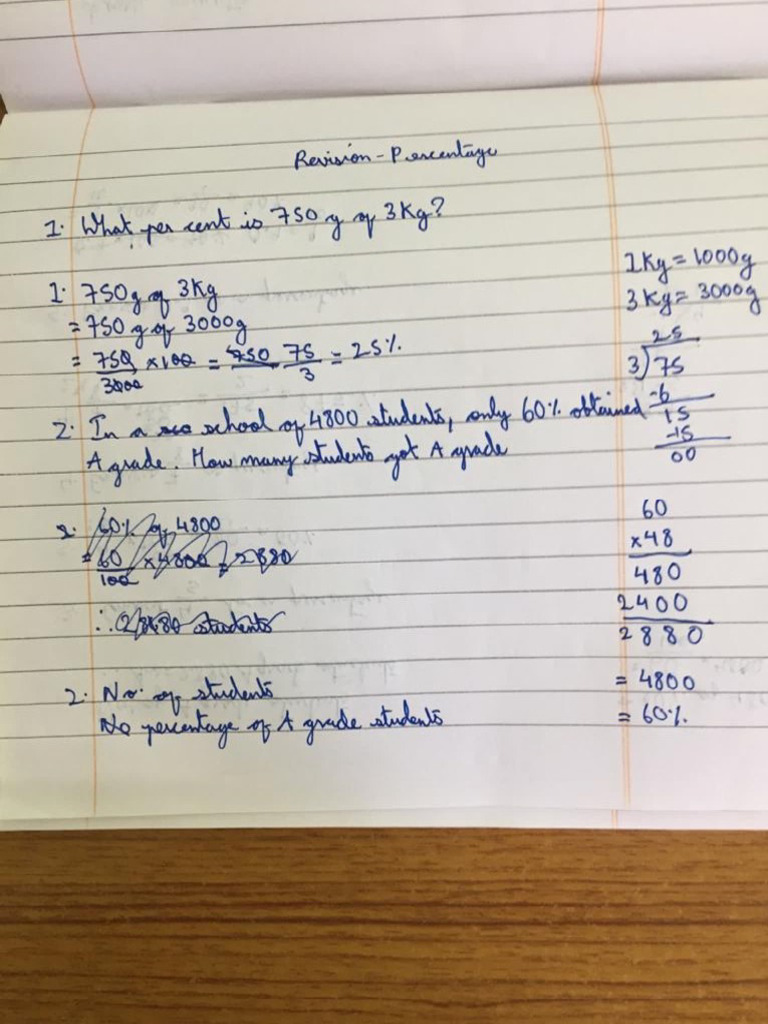 Revision - Percentage
1. What per cent is 750 g of 3Kg?
1Kg = 1000g
1. 750g of 3Kg
3Kg = 3000g
= 750 g of 3000g
= 750/3000 ×100 = 750 75/3 = 25%
25
3)75
-6
15
-15
00
2. In a sco school of 4800 students, only 60% obtained
A grade. How many students got A grade
2. 60% of 4800
= 60/100 ×4800 = 2880
∴ 2880 students
60
×48
480
2400
2880
2. No. of students = 4800
No percentage of A grade students = 60%